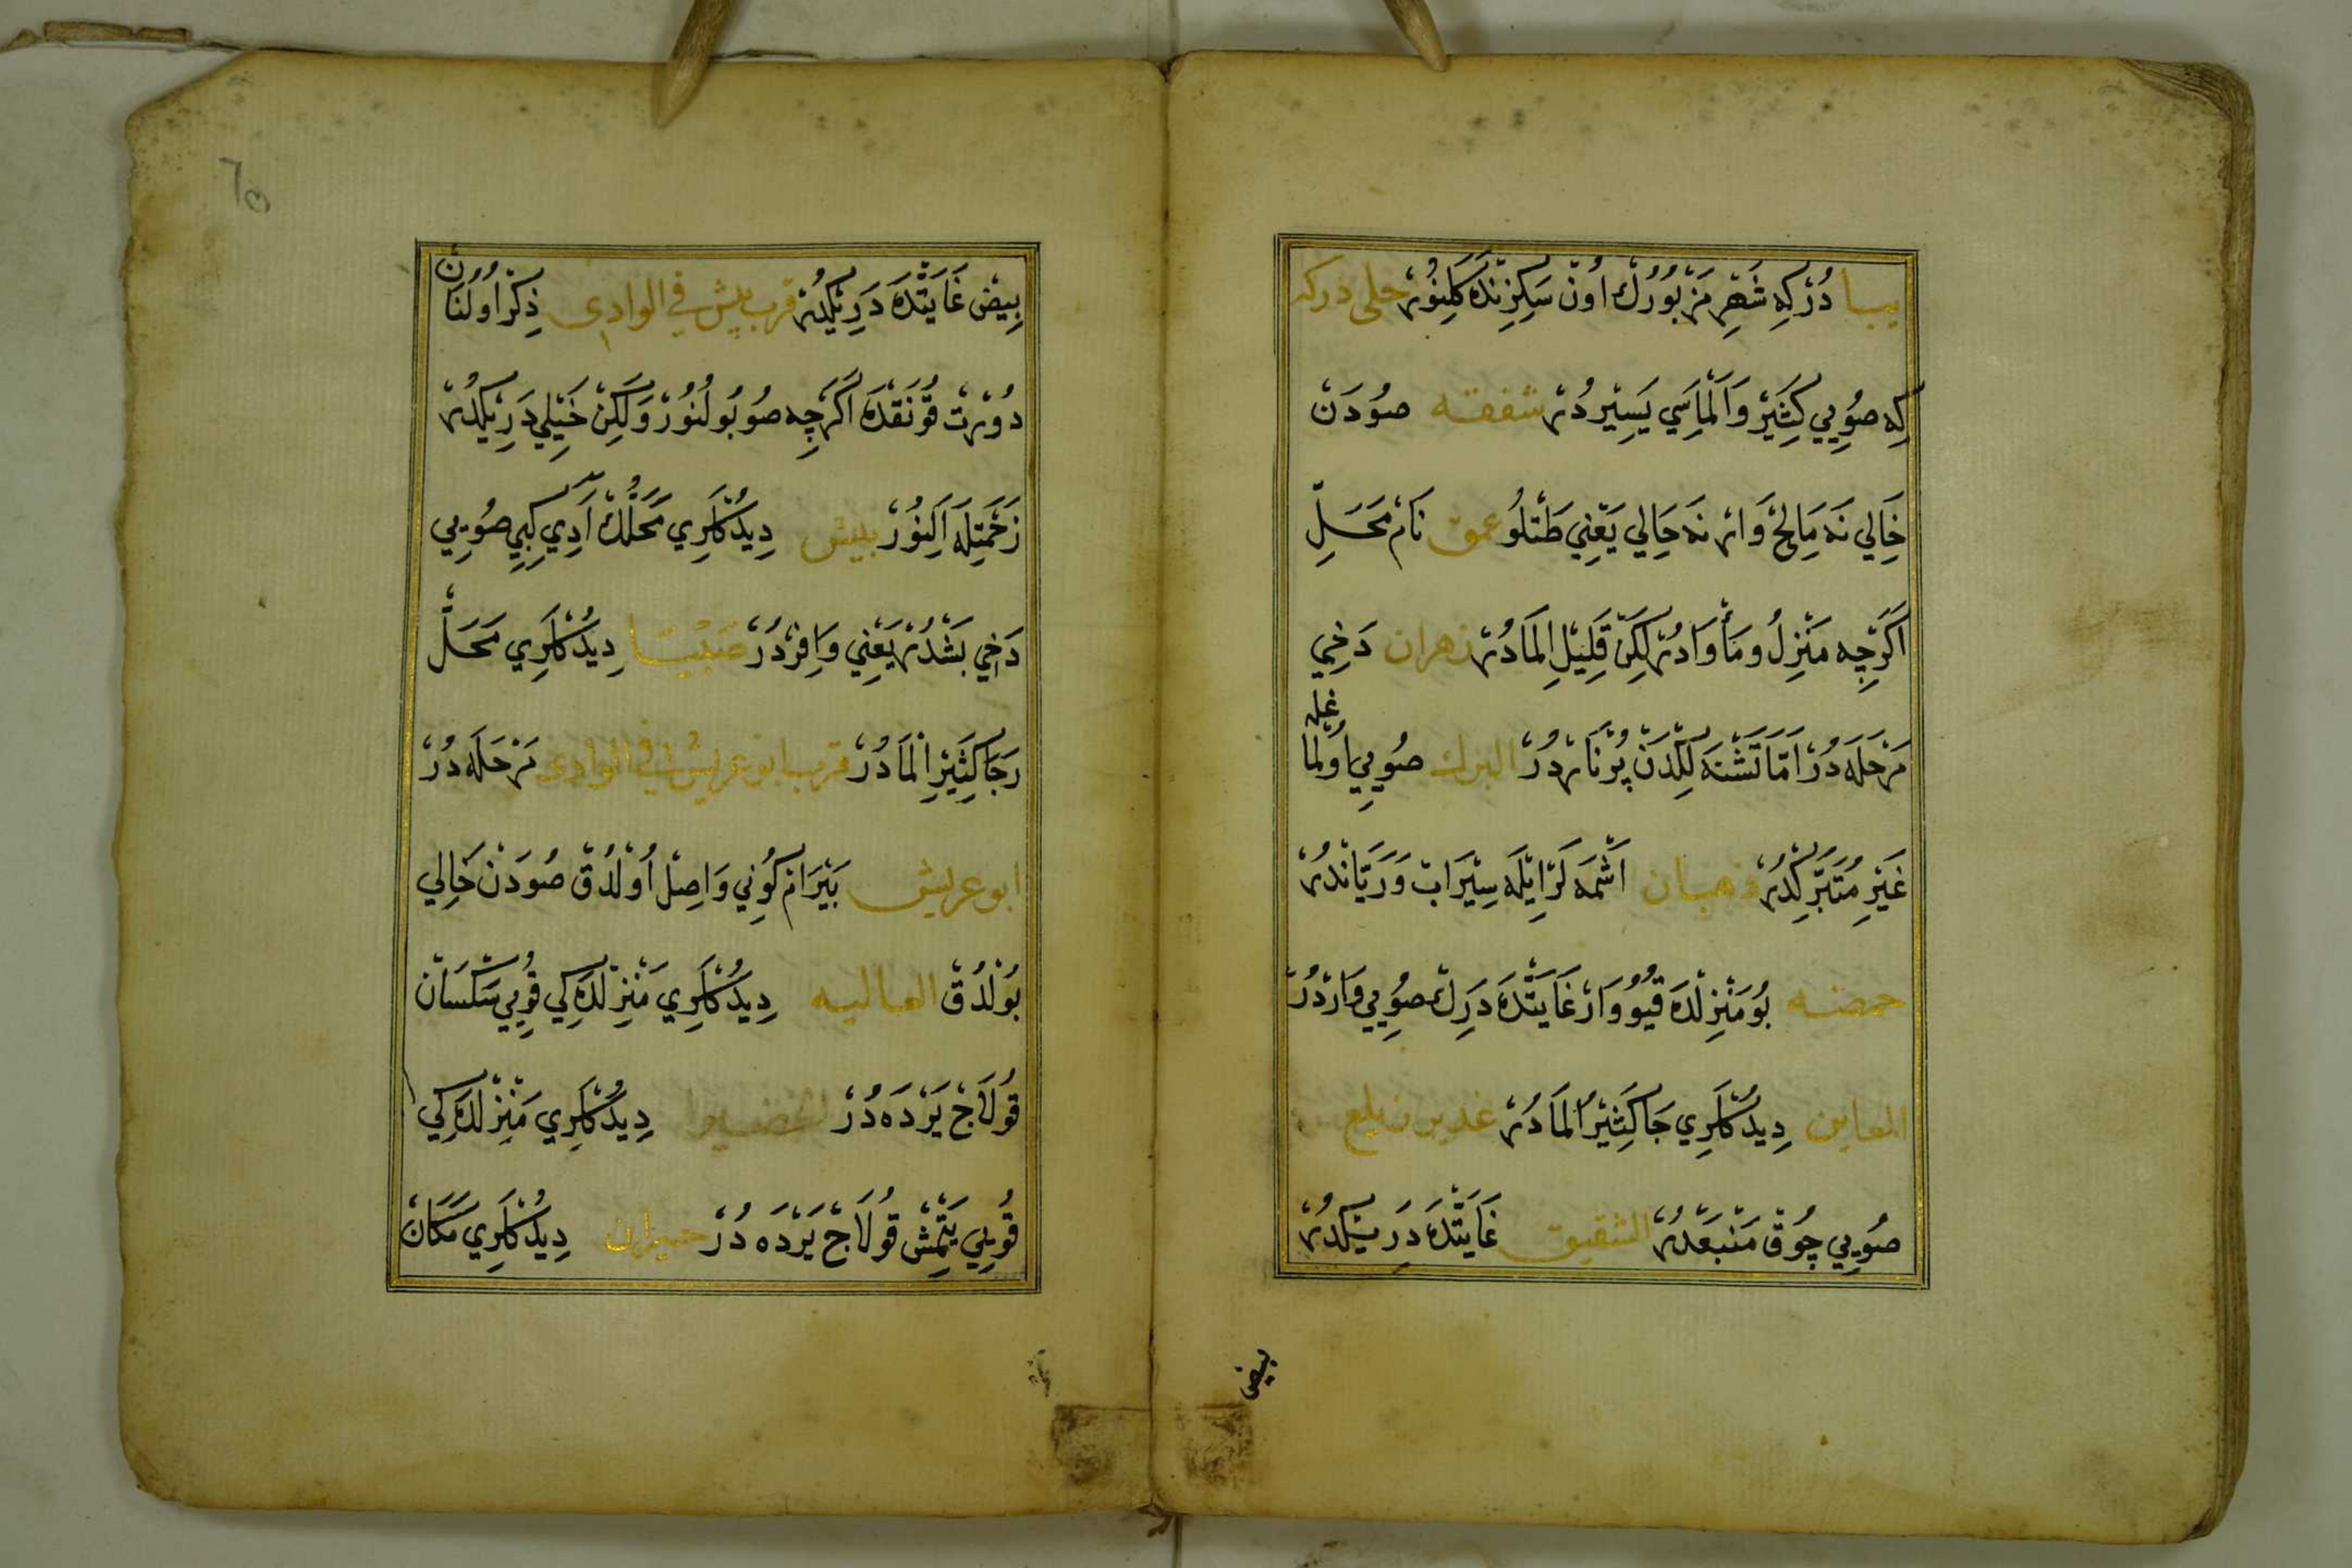 يبا دُرْكِه شَهْرِ مَزْبُورُكْ اُونْ سَكِزِنْدَه كَلِنُورْ حلى دركه
كِه صُويِي كَثِيرْ وَاَلْمَاسِي يَسِيرْدُرْ شفقه صُودَنْ
خَالِي نَه مَالِحْ وَارْ نَه حَالِي يَعْنِي طَتْلُو عمق نَامْ مَحَلِّ
اَكَرْچِه مَنْزِلُ و مَأْوَادُرْ لَكِنْ قَلِيلِ الْمَادُرْ زهران دَخِي
مَرْحَلَه دُرْ اَمَّا تَشْنَه لِكْدَنْ پُرْنَارْدُرْ البرك صُويِي اُولْمَا
غله
غَيْرِ مُتَبَرِّكْدُرْ ذهبان اَشْمَه لَرْ اِيلَه سِيرَابْ وَ رَيَّانْدُرْ
حمضه بُو مَنْزِلْدَه قُيُو وَارْ غَايَتْدَه دَرِكْ صُويِي وَارْدُرْ
المعاين دِيدُكْلَرِي جَا كَثِيرُ الْمَادُرْ غدير
صُويِي چُوقْ مَنْبَعْدُرْ الشقيق غَايَتْدَه دَرِيْكْدُرْ
بيض
بِيضْ غَايَتْدَه دَرِيْكْدُرْ قرب بيش فى الوادى ذِكْرْ اُولُنَانْ
دُورْتْ قُونَقْدَه اَكَرْچِه صُو بُولُنُورْ وَلَكِنْ خَيْلِي دَرِيْكْدُرْ
زَحْمَتِلَه اَلِنُورْ بيش دِيدُكْلَرِي مَحَلُّكْ آدِي كِبِي صُويِي
دَخِي بَشْدُرْ يَعْنِي وَافِرْدُرْ صبيبا دِيدُكْلَرِي مَحَلّْ
رَجَا كَثِيرِ الْمَادُرْ قرب ابو عريش فى الوادى مَرْحَلَه دُرْ
ابو عريش بَيْرَامْ كُونِي وَاصِلْ اُولْدُقْ صُودَنْ خَالِي
بُولْدُقْ العاليه دِيدُكْلَرِي مَنْزِلْدَه كِي قُويِي سَكْسَانْ
قُولَاجْ يَرْدَه دُرْ دِيدُكْلَرِي مَنْزِلْدَه كِي
قُويِي يَتْمِشْ قُولَاجْ يَرْدَه دُرْ دِيدُكْلَرِي مَكَانْ